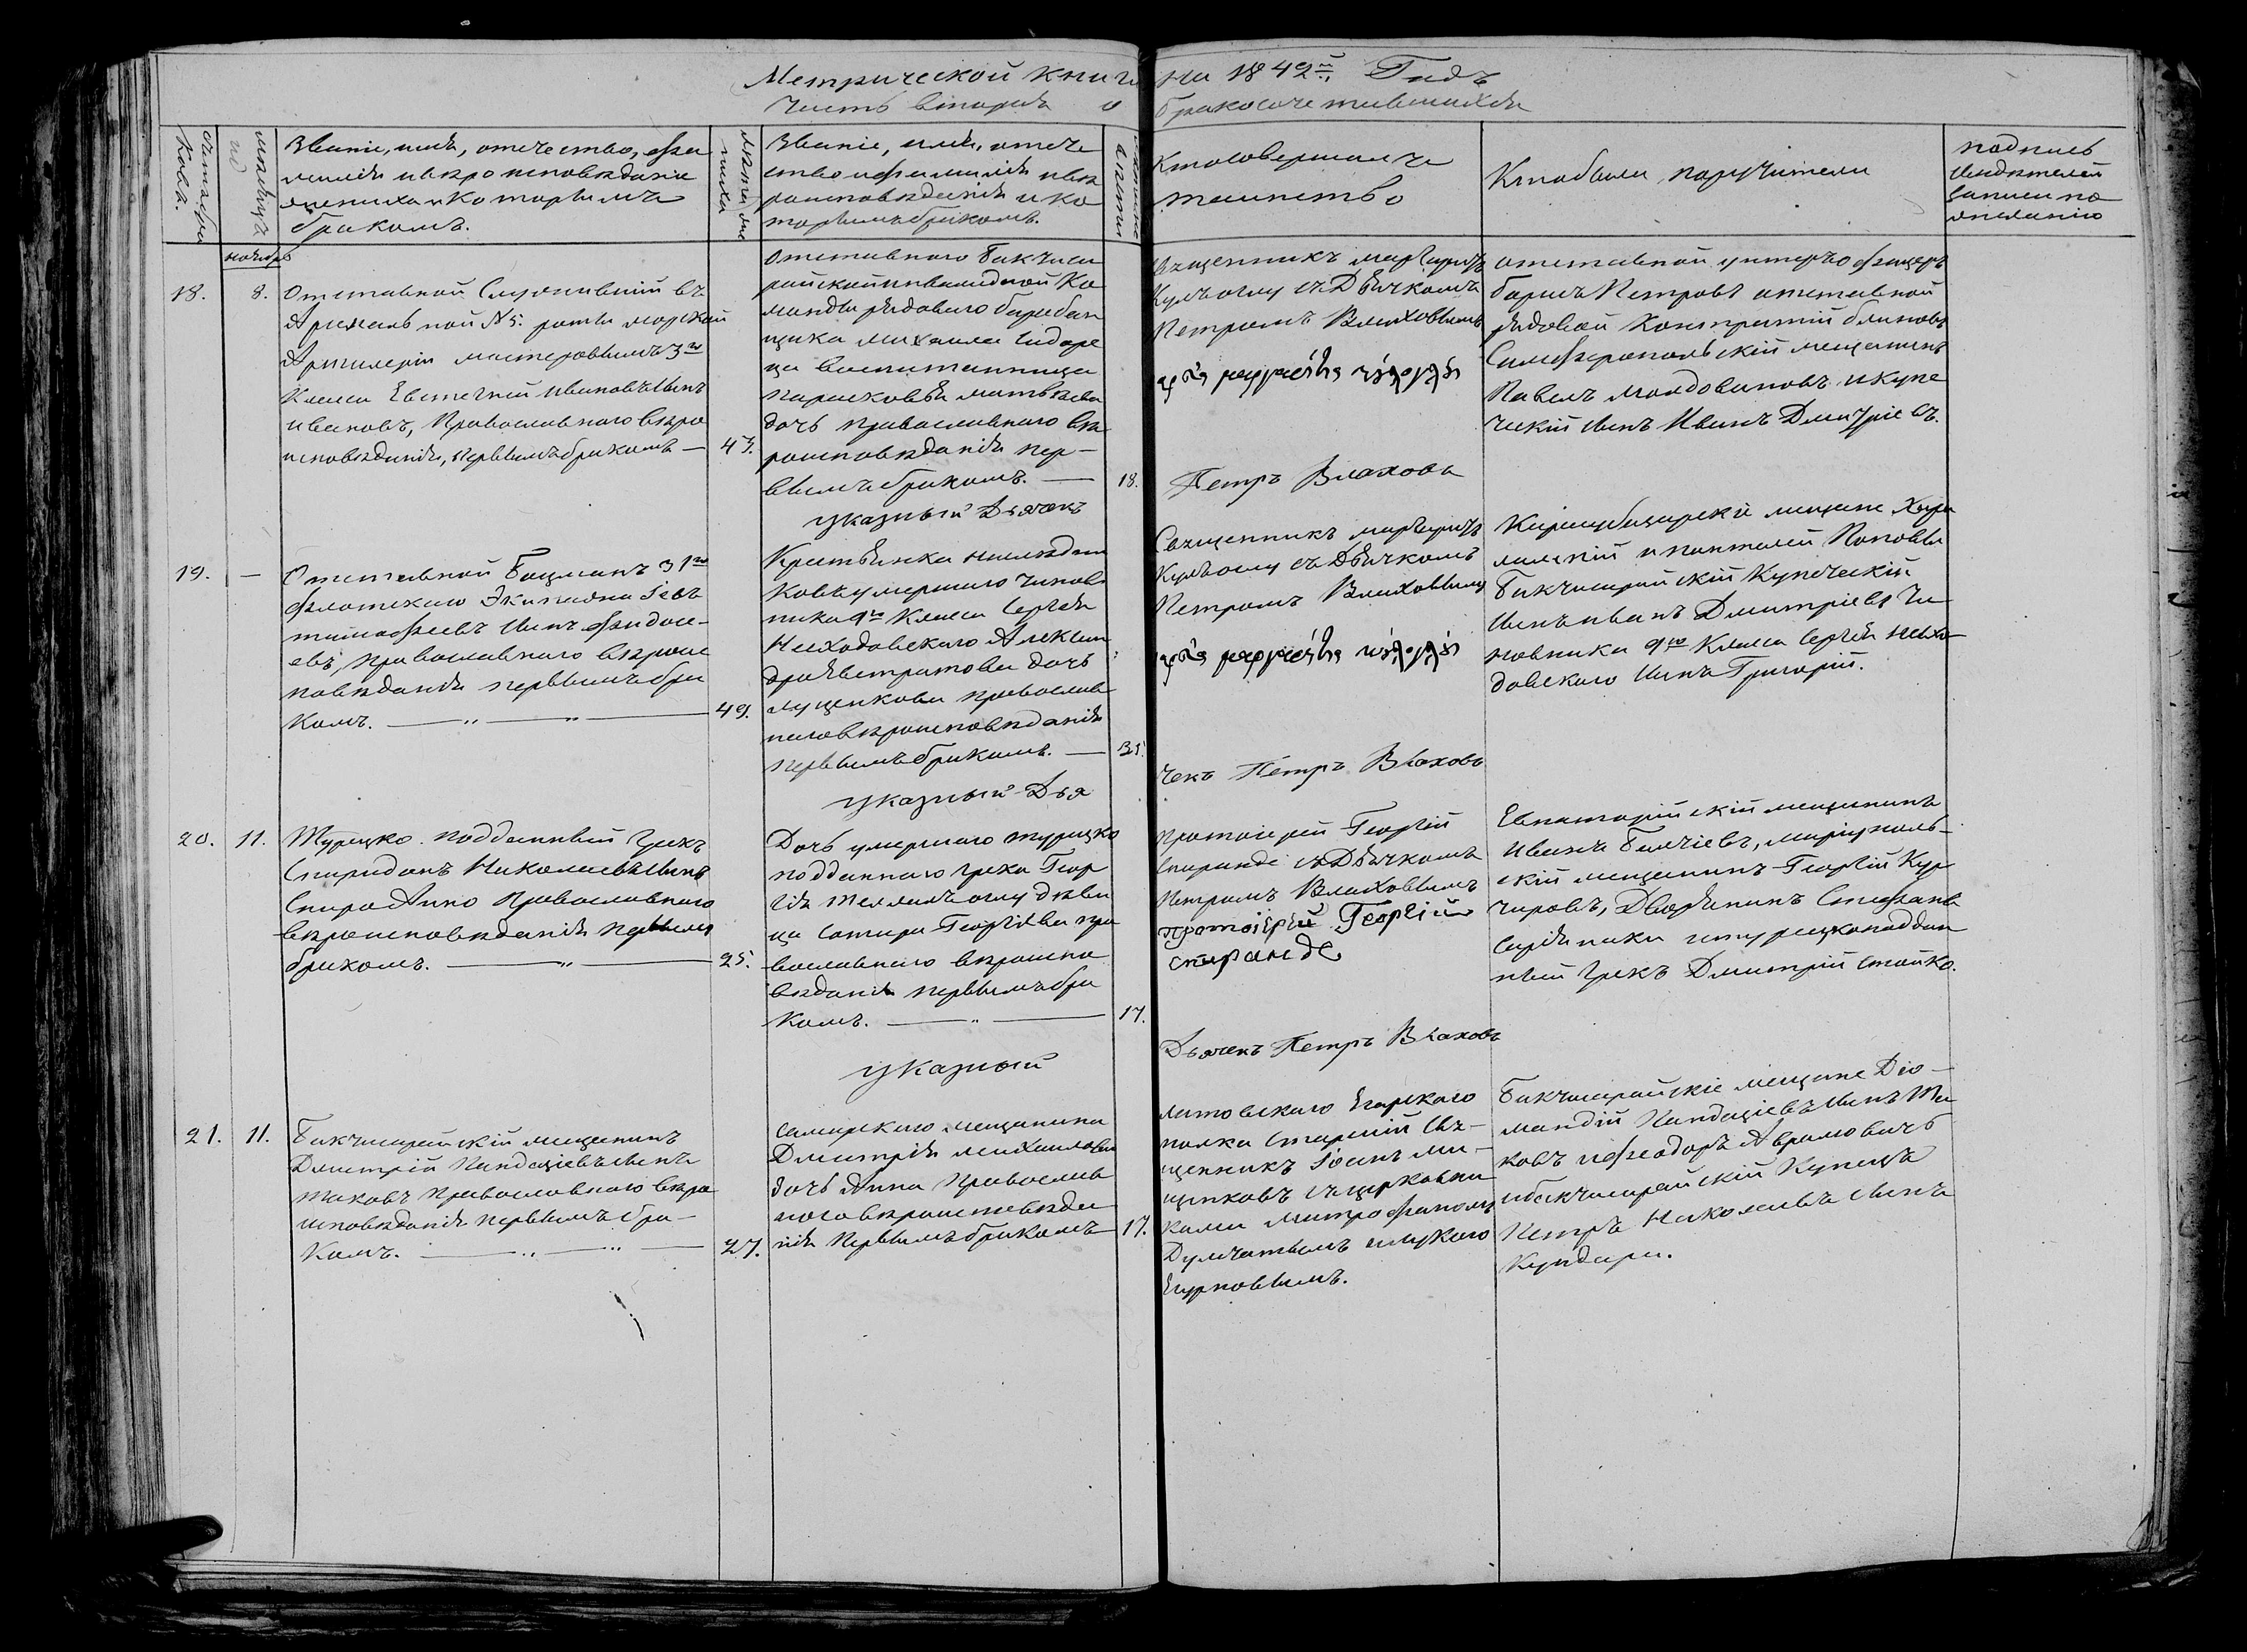 Метрической книги на 1842й Годъ
Часть вторая о бракосочетавшихся
Счетъ браковъ.
мѣсяцъ
Званіе, имя, отечество, фа
милія и вѣроисповѣданіе
жениха и которымъ
бракомъ.
лѣта же
ниха
Званіе, имя, отече
ство и фамилія и вѣ
роисповѣданія и ко
торымъ бракомъ.
лѣта
Кто совершалъ
таинство
Кто были поручители
подпись
свидѣтелей
записи по
желанію
ноября
18.
8.
Отставной Служившій въ
Арсенальной №5. роты морской
Артилеріи мастеровымъ 3го
Класса Евстегней Ивановъ сынъ
Ивановъ, Православнаго вѣро
исповѣданія, первымъ бракомъ —
43.
Отставнаго Бакчиса
райской инвалидной Ко
манды рядоваго барабан
щика Михаила Сидоре
ца воспитанница
Парасковья Матвѣева
дочь православнаго вѣ
роисповѣданія пер—
вымъ бракомъ. —
18.
Священникъ Маргаритъ
Кульоглу съ Дьячкомъ
Петромъ Влаховымъ
отставной унтеръ офицеръ
Борисъ Петровъ отставной
рядовой Контратій Блиновъ
Симферопольскій мещанинъ
Павелъ Молдовановъ и купе
ческій сынъ Иванъ Дмитріевъ.
указный Дьячекъ Петръ Влаховъ
19.
—
Отставной Боцманъ 31го
флотскаго Экипажа Іовъ
Тимофеевъ сынъ Фидосе—
евъ, православнаго вѣроис
повѣданія первымъ бра
комъ. — „ — „ —
49.
Крестьянка наслѣдни
ковъ умершаго чинов
ника 9го Класса Сергѣя
Нисходовскаго Алексан
дра Евстратова дочь
Луценкова православ
наго вѣроисповѣданія
первымъ бракомъ. —
35.
Священникъ Маргаритъ
Кульоглу съ Дьячкомъ
Петромъ Влаховымъ
Карасубазарскіе мещане Хара
лампій и Панталей Поповы
Бакчисарайскій Купеческій
сынъ Иванъ Дмитріевъ чи
новника 9го Класса Сергѣя Нисхо
довскаго сынъ Григорій.
указный Дьячекъ Петръ Влаховъ
20.
11.
Турецко подданный Грекъ
Спиридонъ Николаевъ сынъ
Спиро Православнаго
вѣроисповѣданія первымъ
бракомъ. — „ —
25.
Дочь умершаго турецко
подданнаго грека Геор
гія оглу дѣви
ца Сотира Георгіева пра
вославнаго вѣроиспо
вѣданія первымъ бра
комъ. — „ —
17.
Протоіерей Георгій
Спиранде съ Дьячкомъ
Петромъ Влаховымъ
протоіерей Георгій
спиранде
Евпаторійскій мещанинъ
Иванъ маріуполь—
скій мещанинъ Георгій Кур
чировъ, Дворянинъ Стефанъ
и турецкоподдан
ный Грекъ Дмитрій Стойко.
указный Дьячекъ Петръ Влаховъ
21.
11.
Бакчисарайскій мещанинъ
Дмитрій Пандазіевъ сынъ
Таковъ православнаго вѣро
исповѣданія первымъ бра—
комъ. — „ — „ —
27.
Самарскаго мещанина
Дмитрія Михаилова
дочь Анна Православ
ного вѣроисповѣда
нія первымъ бракомъ
17.
Литовскаго Егарскаго
полка старшій Свя—
щенникъ Іоанъ Ми—
ценковъ съ церковни
ками Митрофаномъ
Бакчисарайскіе мещане Дio—
мандій Пандазіевъ сынъ Та
ковъ и Феодоръ Аврамовичъ
и бакчисарайскій Купецъ
Петръ Николаевъ сынъ
Кундари.